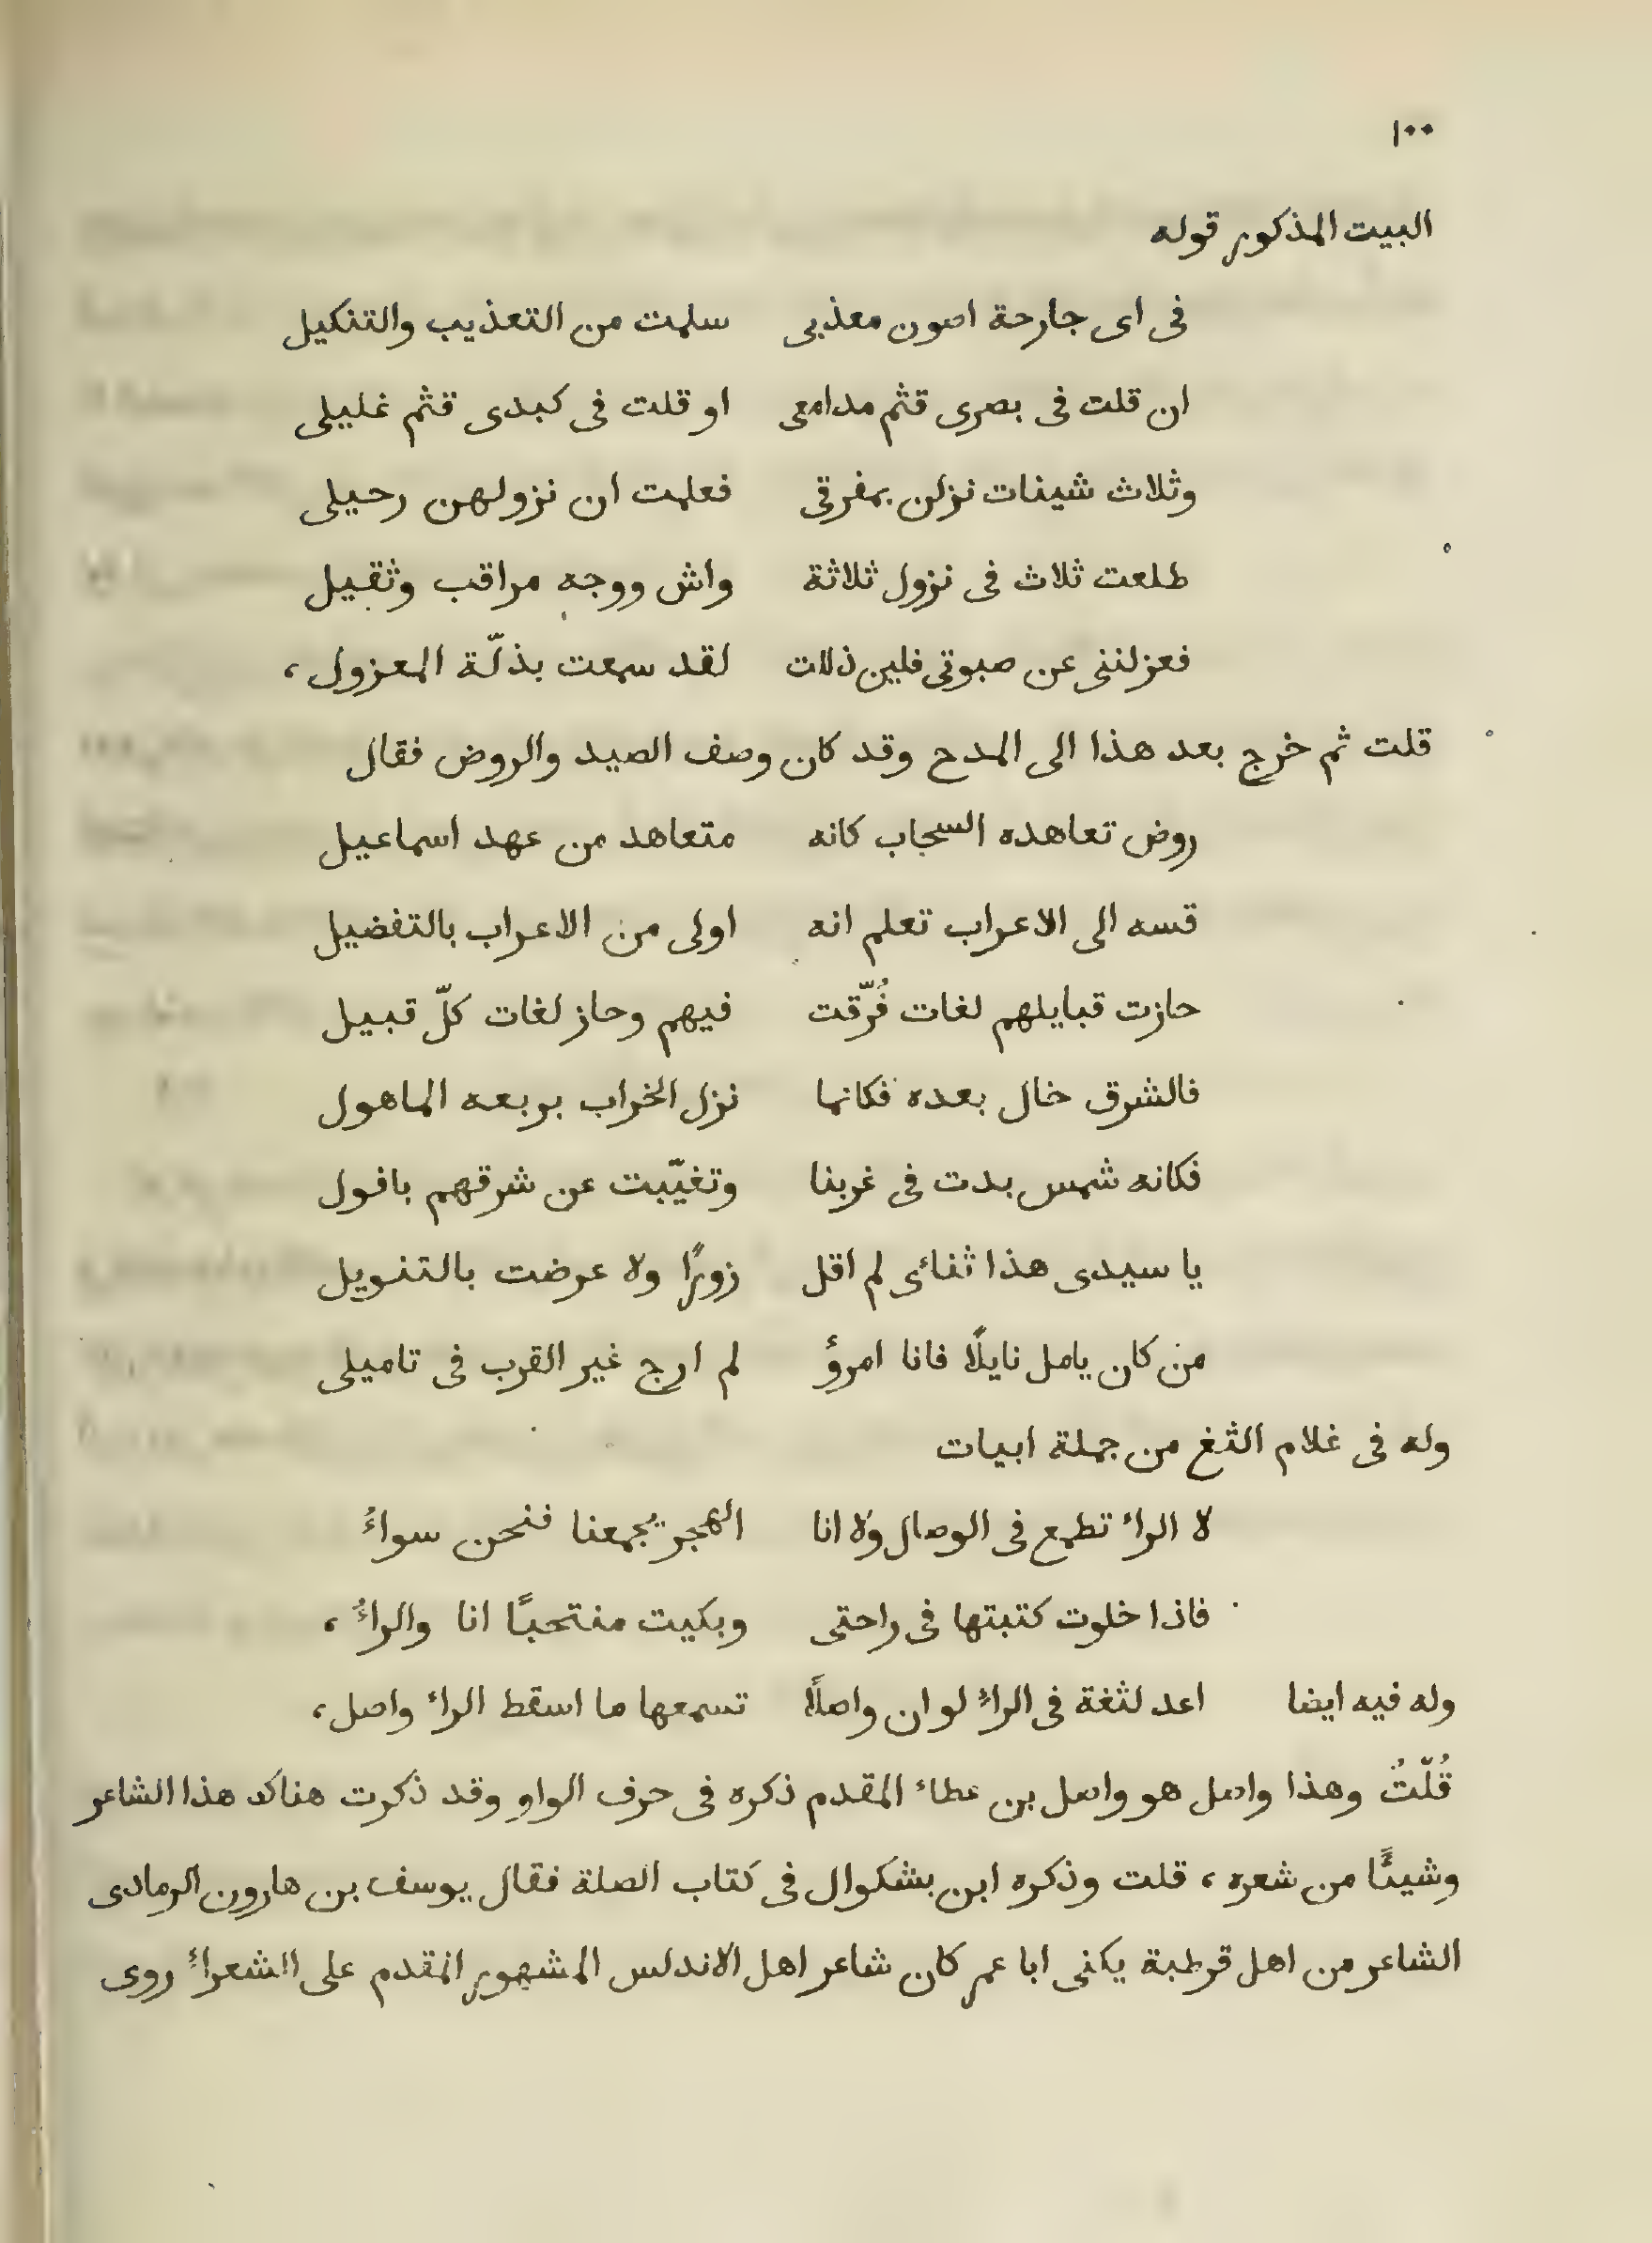 ١٠٠
البيت المذكور قوله
فى اى جارحة اصون معذبى سلمت من التعذيب والتنكيل
ان قلت فى بصرى قثم مدامعى او قلت فى كبدى قثم غليلى
وثلاث شينات نزلن بمفرقى فعلمت ان نزولهن رحيلى
طلعت ثلاث فى نزول ثلاثة واش ووجه مراقب وثقيل
فعزلننى عن صبوتى فلين ذللت لقد سمعت بذلّة المعزول ،
قلت ثم خرج بعد هذا الى المدح وقد كان وصف الصيد والروض فقال
روض تعاهده السحاب كانه متعاهد من عهد اسماعيل
قسه الى الاعراب تعلم انه اولى من الاعراب بالتفضيل
حازت قبايلهم لغات فُرّقت فيهم وحاز لغات كلّ قبيل
فالشرق خال بعده فكانما نزل الخراب بربعه الماهول
فكانه شمس بدت فى غربنا وتغيّبت عن شرقهم بافول
يا سيدى هذا ثنائى لم اقل زورًا ولا عرضت بالتنويل
من كان يامل نايلًا فانا امرؤ لم ارج غير القرب فى تاميلى
وله فى غلام الثغ من جملة ابيات
لا الراء تطمع فى الوصال ولا انا الهجر يجمعنا فنحن سواءُ
فاذا خلوت كتبتها فى راحتى وبكيت منتحبًا انا والراءُ ،
وله فيه ايضا اعد لثغة فى الراءِ لو ان واصلًا تسمعها ما اسقط الراء واصل ،
قُلّتُ وهذا واصل هو واصل بن عطاء المقدم ذكره فى حرف الواو وقد ذكرت هناك هذا الشاعر
وشيئًا من شعره ، قلت وذكره ابن بشكوال فى كتاب الصلة فقال يوسف بن هارون الرمادى
الشاعر من اهل قرطبة يكنى ابا عمر كان شاعر اهل الاندلس المشهور المقدم على الشعراءِ روى